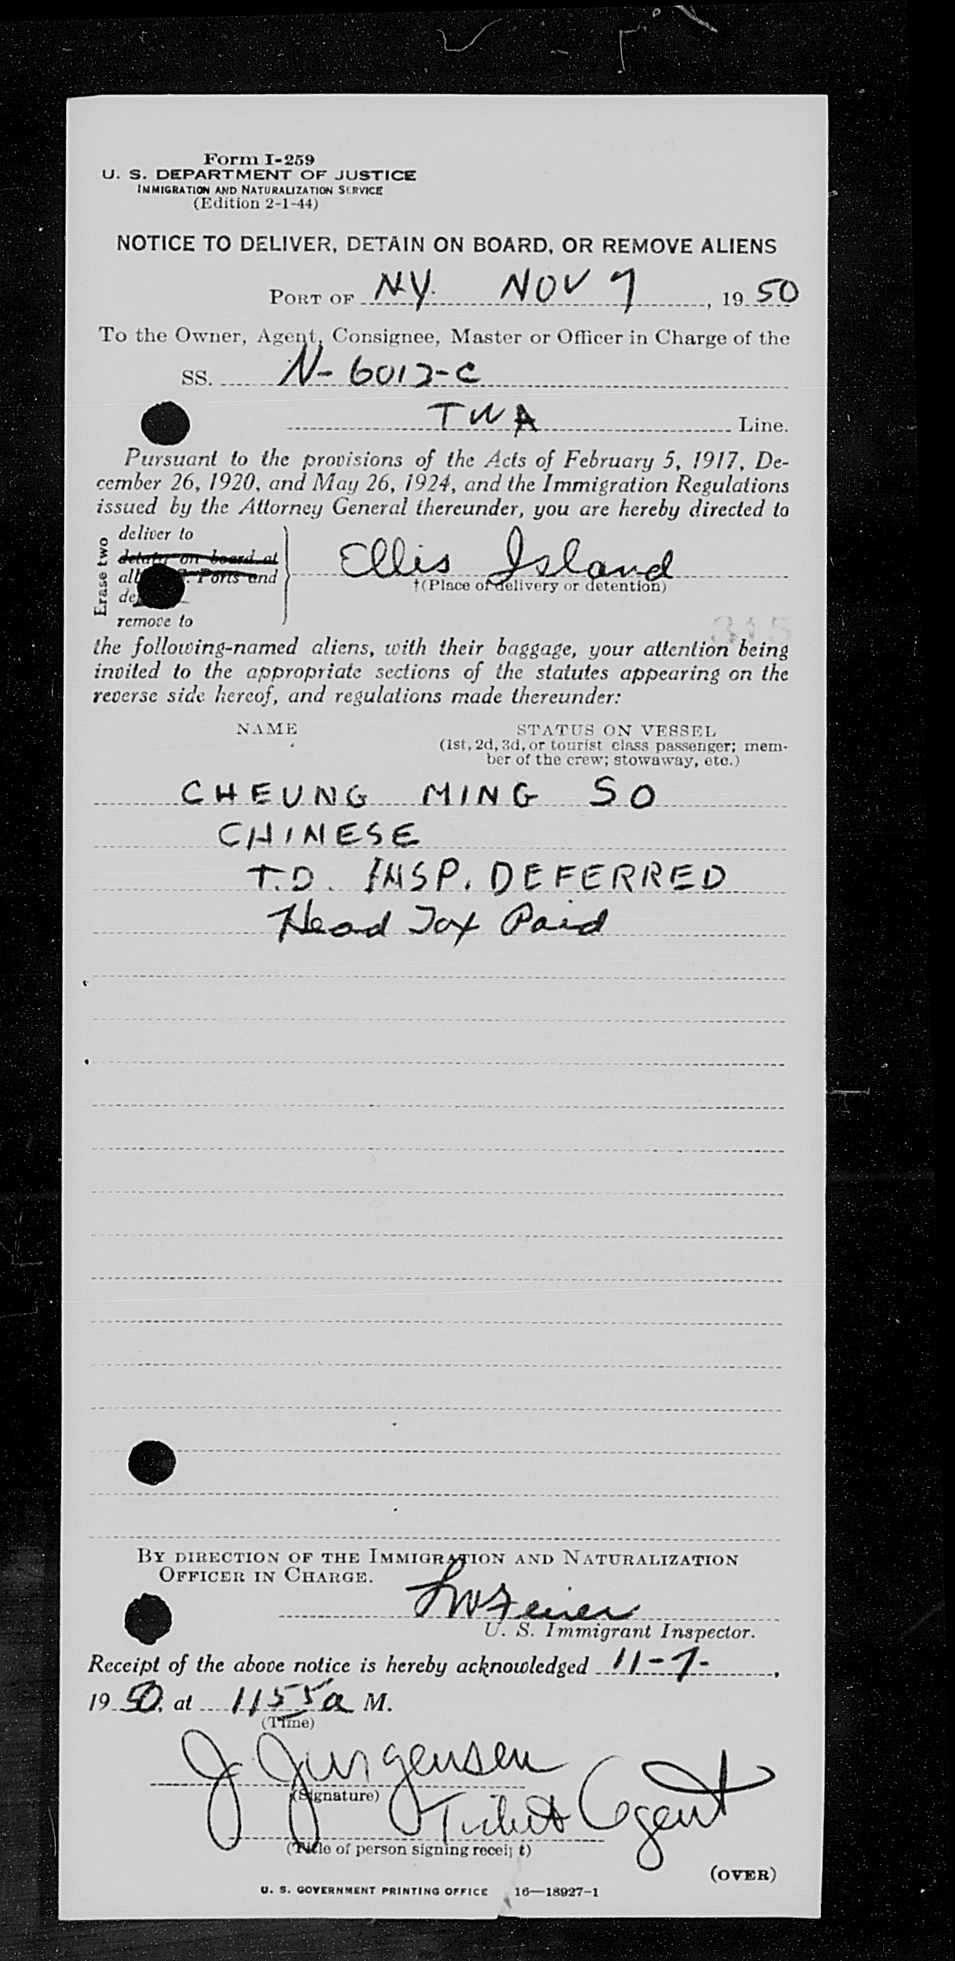 Form I-259
U. S. DEPARTMENT OF JUSTICE
IMMIGRATION AND NATURALIZATION SERVICE
(Edition 2-1-44)
NOTICE TO DELIVER, DETAIN ON BOARD, OR REMOVE ALIENS
PORT OF N.Y. NOV 7, 19 50
To the Owner, Agent, Consignee, Master or Officer in Charge of the
SS. N-6013-C
TWA Line.
Pursuant to the provisions of the Acts of February 5, 1917, De-
cember 26, 1920, and May 26, 1924, and the Immigration Regulations
issued by the Attorney General thereunder, you are hereby directed to
Erase two
deliver to
detain on board at
all Ports and
remove to
Ellis Island
†(Place of delivery or detention)
315
the following-named aliens, with their baggage, your attention being
invited to the appropriate sections of the statutes appearing on the
reverse side hereof, and regulations made thereunder:
NAME STATUS ON VESSEL
(1st, 2d, 3d, or tourist class passenger; mem-
ber of the crew; stowaway, etc.)
CHEUNG MING SO
CHINESE
T.D. INSP. DEFERRED
Head Tax Paid
BY DIRECTION OF THE IMMIGRATION AND NATURALIZATION
OFFICER IN CHARGE.
U. S. Immigrant Inspector.
Receipt of the above notice is hereby acknowledged 11-7-,
19 50, at 1155 a M.
(Time)
J Jurgensen
(Signature)
Ticket Agent
(Title of person signing receipt)
(OVER)
U. S. GOVERNMENT PRINTING OFFICE 16—18927-1